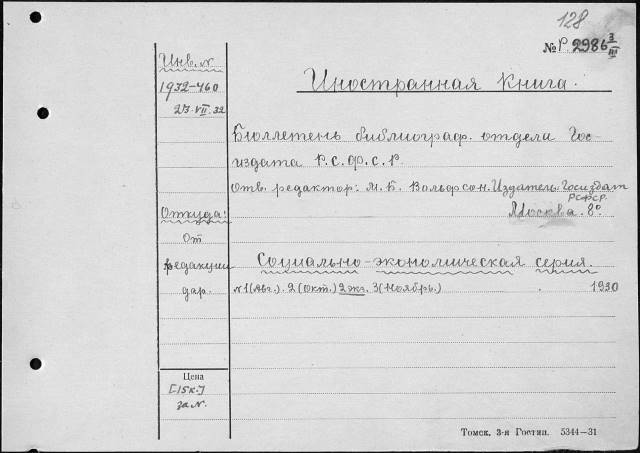 128
№ Р. 2986 3/III
Инв. №
1932-460
23.VII.32
Иностранная Книга.
Бюллетень библиограф. отдела Гос-
издата Р.С.Ф.С.Р.
Отв. редактор: М. Б. Вольфсон. Издатель: Госиздат
РСФСР.
Москва. 8°
Откуда:
От
редакции
дар.
Социально-экономическая серия.
№1 (Авг.). 2 (Окт.) 2 экз. 3 (Ноябрь.) . 1930
Цена
[15к.]
за №.
Томск, 3-я Гостип. 5344—31